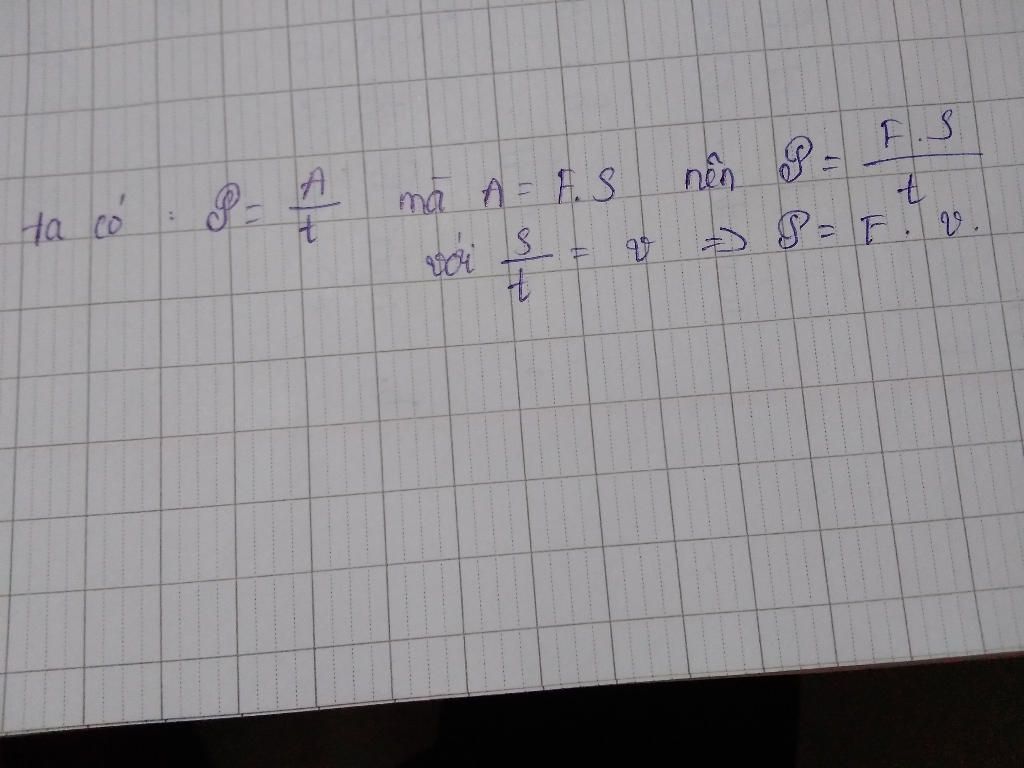 ta có : P = A/t mà A = F.S nên P = F.S/t
với s/t = v => P = F. v.